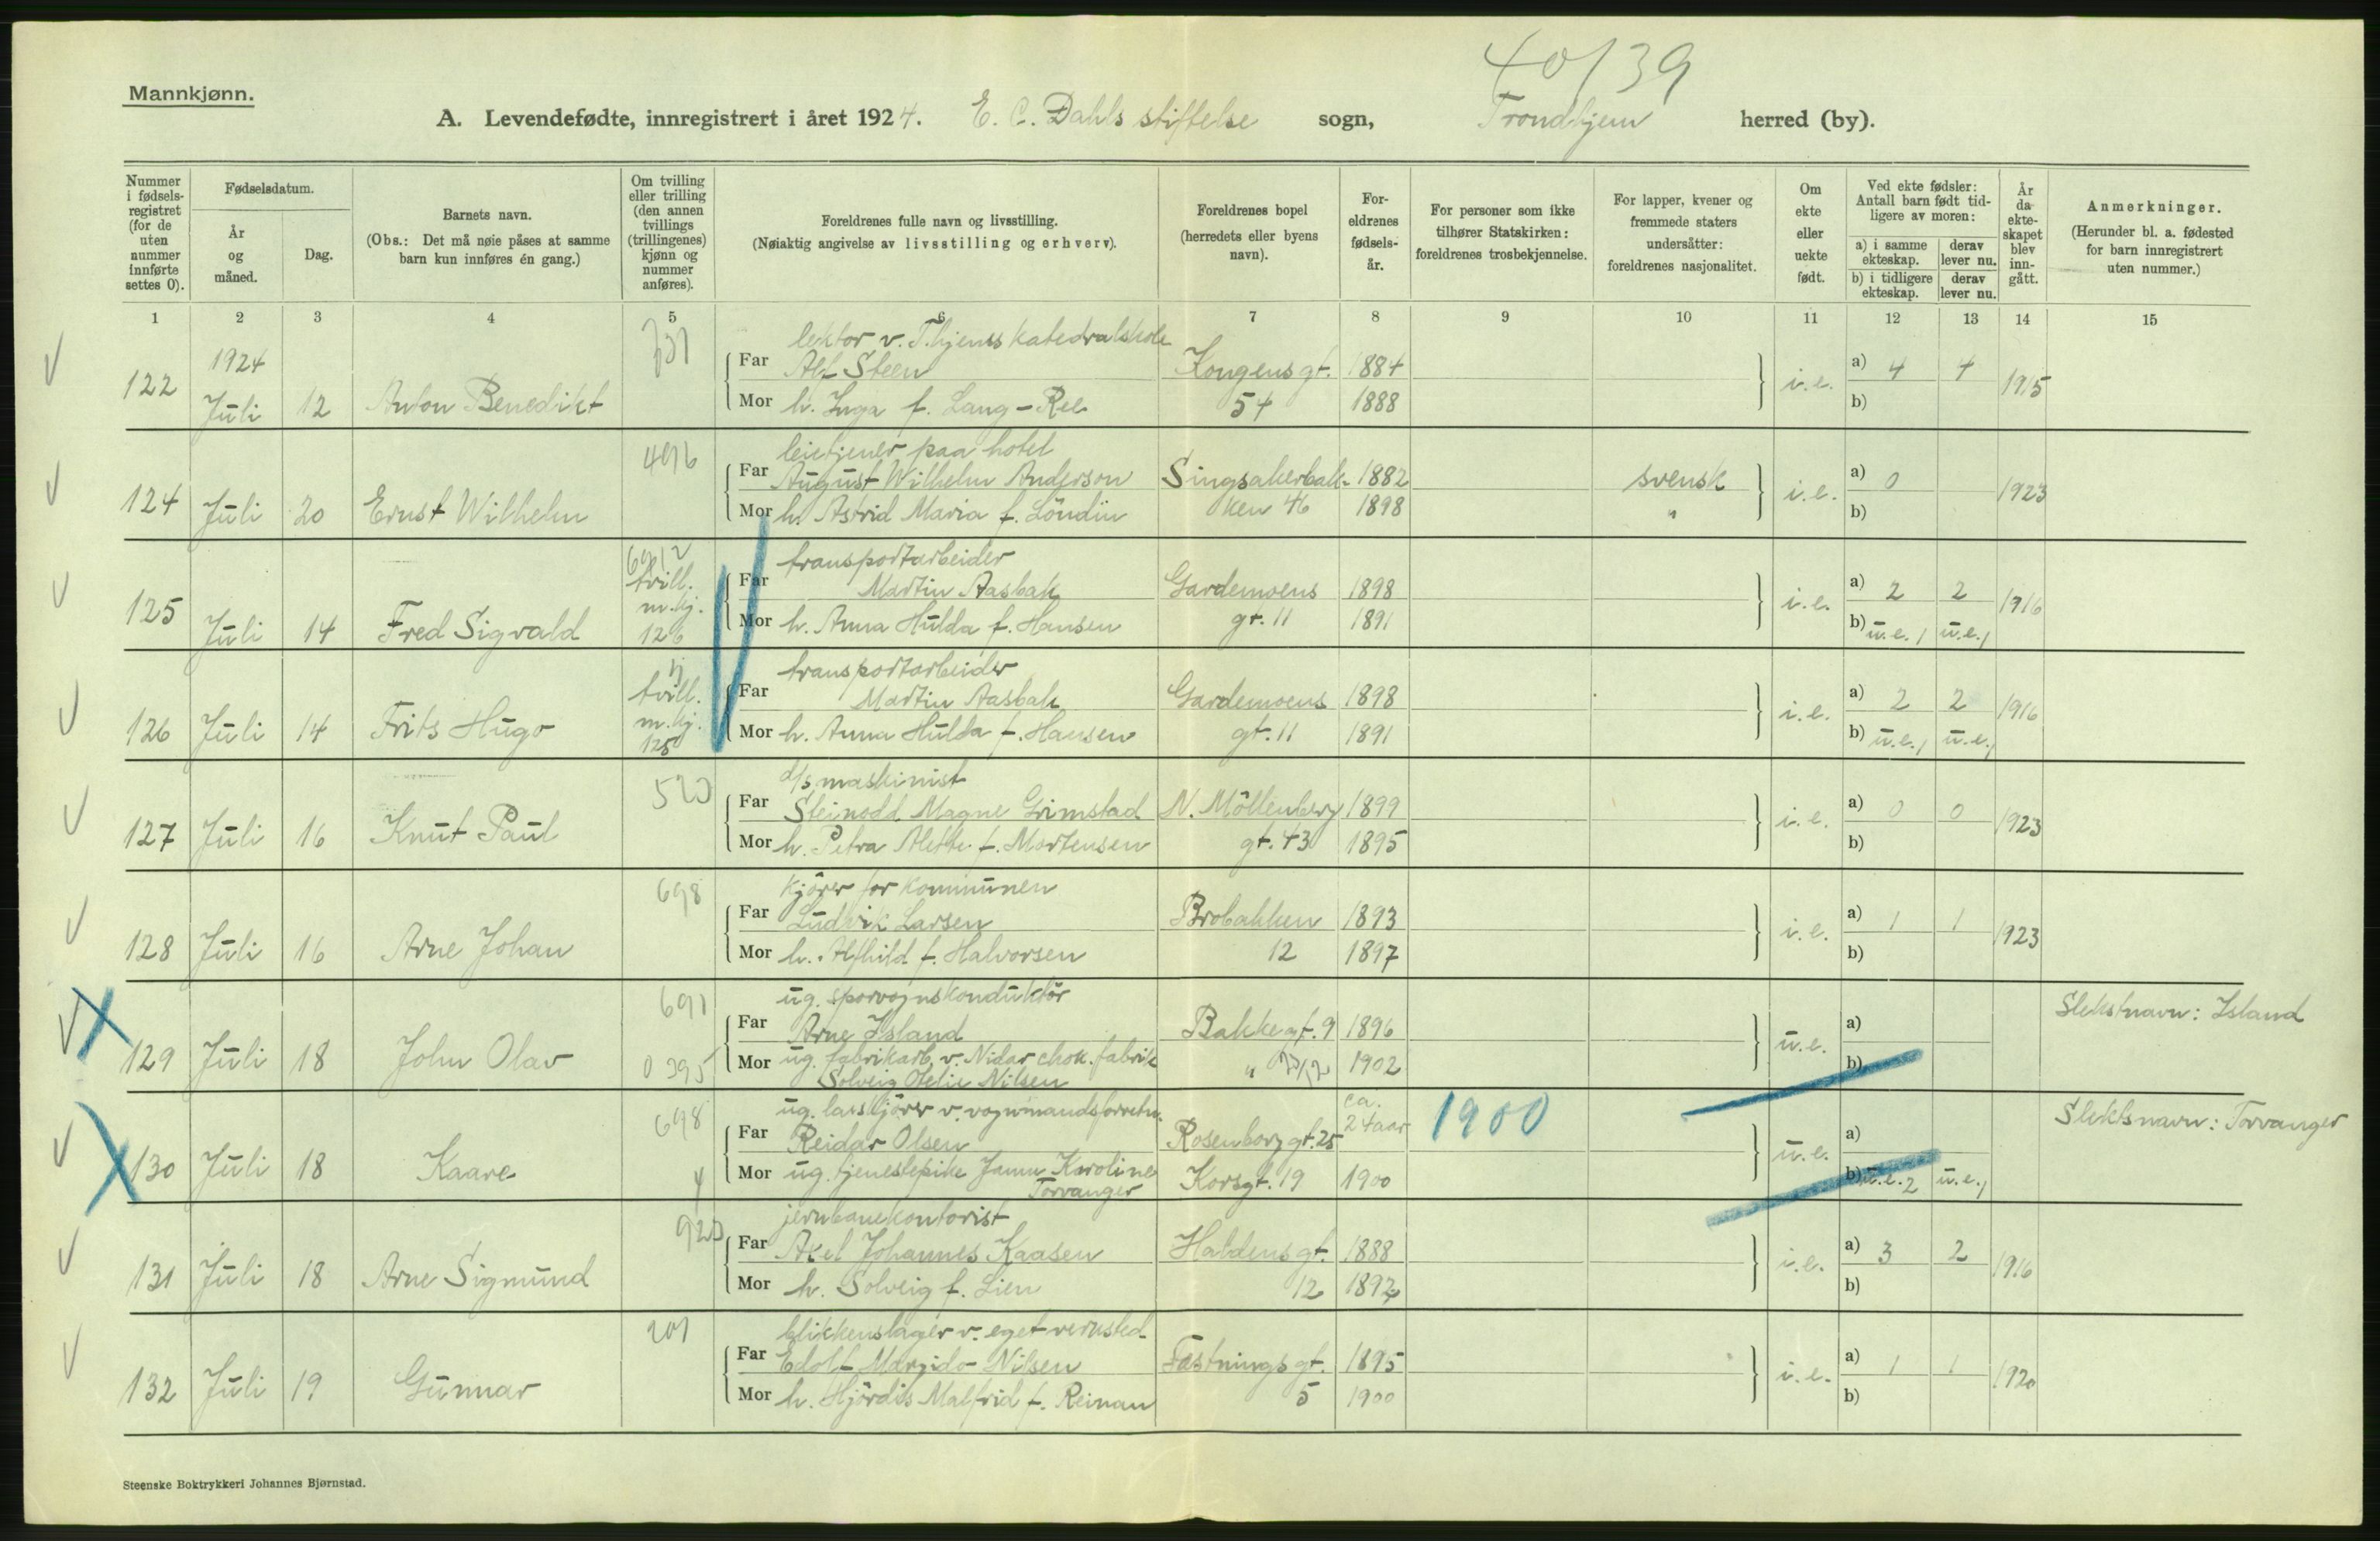 40/39
Mannkjønn.
A. Levendefødte, innregistrert i året 1924. E. C. Dahls stiftelse sogn, Trondhjem herred (by).
Nummer i fødsels-registret (for de uten nummer innførte settes 0).
Fødselsdatum.
År og måned.
Dag.
Barnets navn.
(Obs.: Det må nøie påses at samme barn kun innføres én gang.)
Om tvilling eller trilling (den annen tvillings (trillingenes) kjønn og nummer anføres).
Foreldrenes fulle navn og livsstilling.
(Nøiaktig angivelse av livsstilling og erhverv).
Foreldrenes bopel (herredets eller byens navn).
For-eldrenes fødsels-år.
For personer som ikke tilhører Statskirken: foreldrenes trosbekjennelse.
For lapper, kvener og fremmede staters undersåtter: foreldrenes nasjonalitet.
Om ekte eller uekte født.
Ved ekte fødsler: Antall barn født tid-ligere av moren:
a) i samme ekteskap.
derav lever nu.
b) i tidligere ekteskap.
derav lever nu.
År da ekte-skapet blev inn-gått.
Anmerkninger.
(Herunder bl. a. fødested for barn innregistrert uten nummer.)
1 2 3 4 5 6 7 8 9 10 11 12 13 14 15
lektor v. T.hjems katedralskole
1924
122 Juli 12 Anton Benedikt
Far Alf Steen Kongens gt. 1884 i.e. a) 4 4 1915
Mor h. Inga f. Lang-Ree 54 1888 b)
496
leietjener paa hotel
124 Juli 20 Ernst Wilhelm
Far August Wilhelm Anderson Singsakerbak- 1882 svensk i.e. a) 0 1923
Mor h. Astrid Maria f. Löndin ken 46 1898 " b)
transportarbeider
125 Juli 14 Fred Sigvald tvill. m.kj. 126
Far Martin Aasbak Gardemoens 1898 i.e. a) 2 2 1916
Mor h. Anna Hulda f. Hansen gt. 11 1891 b) u.e. 1 u.e. 1
transportarbeider
126 Juli 14 Frits Hugo tvill. m.kj. 125
Far Martin Aasbak Gardemoens 1898 i.e. a) 2 2 1916
Mor h. Anna Hulda f. Hansen gt. 11 1891 b) u.e. 1 u.e. 1
d/s maskinist
127 Juli 16 Knut Paul
Far Steinodd Magne Grimstad N. Möllenberg 1899 i.e. a) 0 0 1923
Mor h. Petra Alette f. Mortensen gt. 43 1895 b)
698
kjörer for kommunen
128 Juli 16 Arne Johan
Far Ludvik Larsen Brobakken 1893 i.e. a) 1 1 1923
Mor h. Alfhild f. Halvorsen 12 1897 b)
691
ug. sporvognskonduktör
129 Juli 18 John Olav 0 395
Far Arne Island Bakkegt. 9 1896 u.e. a) Slektsnavn: Island
Mor ug. fabrikarb. v. Nidar chok. fabrik " 1902 b)
Solveig Otelie Nilsen
698
ug. lasskjörer v. vognmandsforretn.
130 Juli 18 Kaare
Far Reidar Olsen Rosenborg gt. 25 ca. 24 aar 1900 u.e. a) Slektsnavn: Torvanger
Mor ug. tjenestepike Janna Karoline Korsgt. 19 1900 b) u.e. 2 u.e. 1
Torvanger
jernbanekontorist
131 Juli 18 Arne Sigmund
Far Axel Johannes Kaasen Haldens gt. 1888 i.e. a) 3 2 1916
Mor h. Solveig f. Lien 12 1892 b)
blikkenslager v. eget verksted
132 Juli 19 Gunnar
Far Edolf Margido Nilsen Fæstnings gt. 1895 i.e. a) 1 1 1920
Mor h. Hjördis Malfrid f. Reinan 5 1900 b)
Steenske Boktrykkeri Johannes Bjørnstad.